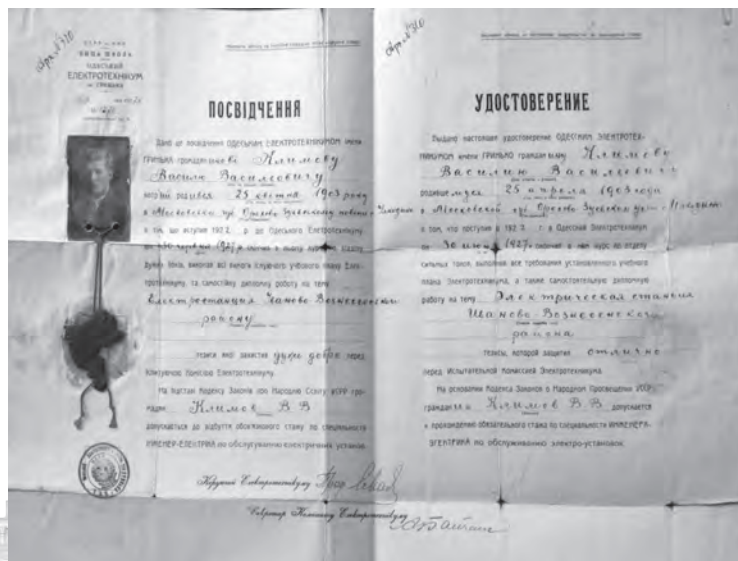 ВИЩА ШКОЛА
ОДЕСЬКИЙ
ЕЛЕКТРОТЕХНІКУМ
ПОСВІДЧЕННЯ
Дано це посвідчення ОДЕСЬКИМ ЕЛЕКТРОТЕХНІКУМОМ імени
ГРИНЬКА громадянинові Климову
Василю Васильовичу
родився 25 квітня 1903 року
в Московской губ. Орехово Зуевскому
в тім, що вступив 1922 р. до Одеського Електротехнікуму
30 червня 1927
тротехнікуму, та самостійну дипломну роботу на тему
Електростанция Иваново-Вознесенськ
району
тезиси якої захистив дуже добре перед
Комісією Електротехнікуму.
На підставі Кодексу Законів про Народню Освіту УСРР гро-
мадян Климов В В
допускається до відбуття обов'язкового стажу по спеціяльности
ІНЖЕНЕР-ЕЛЕКТРИКА по обслугуванню електричних установ.
Керуючий Електротехнікуму
Секретар Електротехнікуму
УДОСТОВЕРЕНИЕ
Выдано настоящее удостоверение ОДЕССКИМ ЭЛЕКТРОТЕХ-
НИКУМОМ имени ГРИНЬКО гражданину Климову
Василию Васильевичу
родившемуся 25 апреля 1903 года
в Московской губ Орехово Зуевском
в том, что поступив 1922 г. в Одесский Электротехникум
30 июня 1927, окончил в нем курс по отделу
сильных токов, выполнив все требования установленного учебного
плана Электротехникума, а также самостоятельную дипломную
работу на тему Электрическая станция
Иваново-Вознесенского
района
тезисы, которой защитил отлично
перед Испытательной Комиссией Электротехникума.
На основании Кодекса Законов о Народном Просвещении УССР,
гражданин Климов В.В. допускается
к прохождению обязательного стажа по специальности ИНЖЕНЕРА-
ЭЛЕКТРИКА по обслуживанию электро-установок.